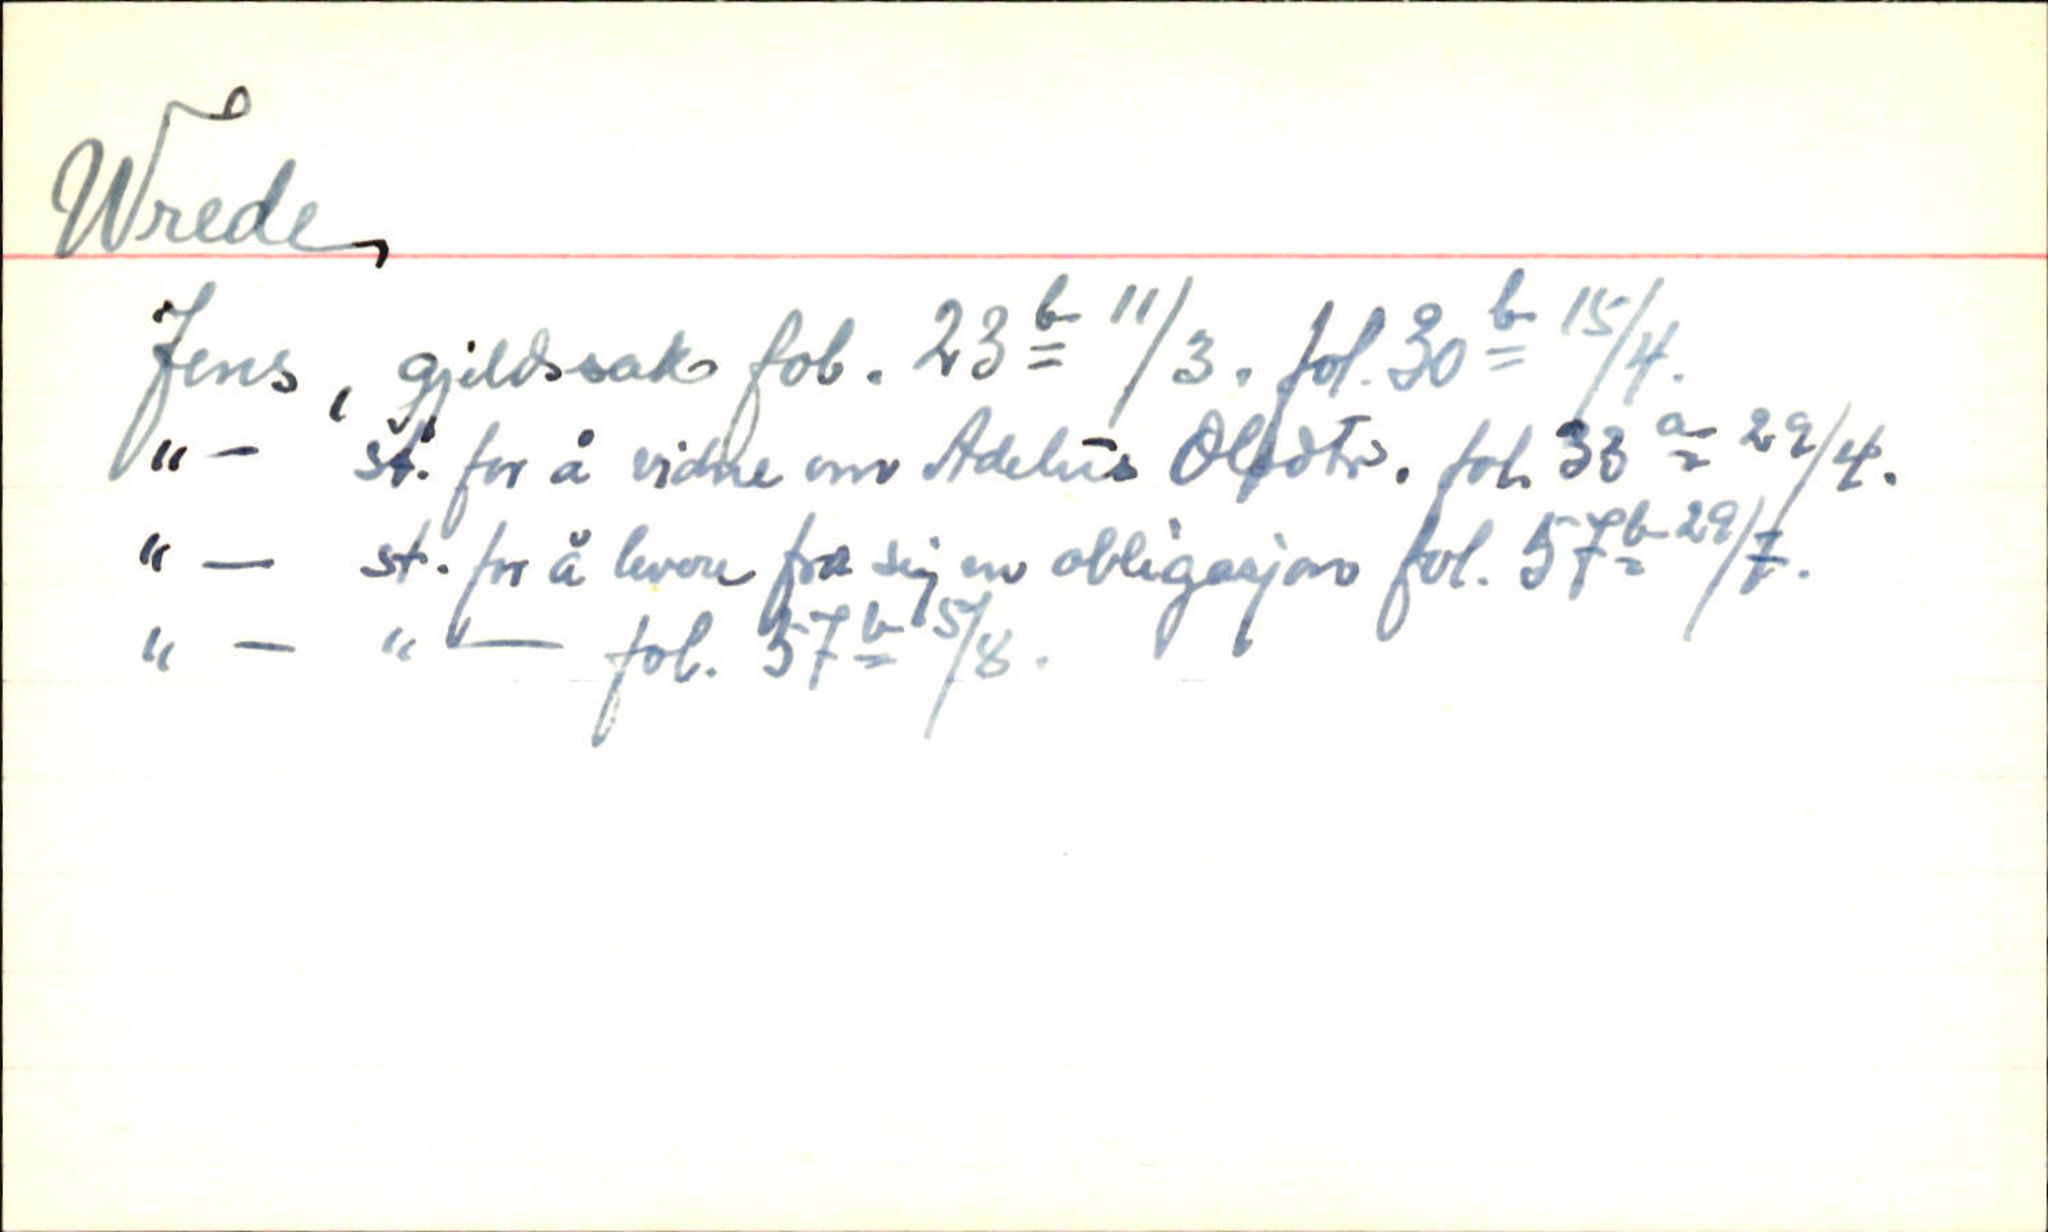 Wrede,
Jens, gjeldssak fol. 23 b 11/3. fol. 30 b 15/4.
"— st. for å vidne om Adelus Olsdtr. fol. 33 a 29/4.
"— st. for å levere fra sig en obligasjon fol. 57 b 29/7.
"— "— fol. 57 b 5/8.